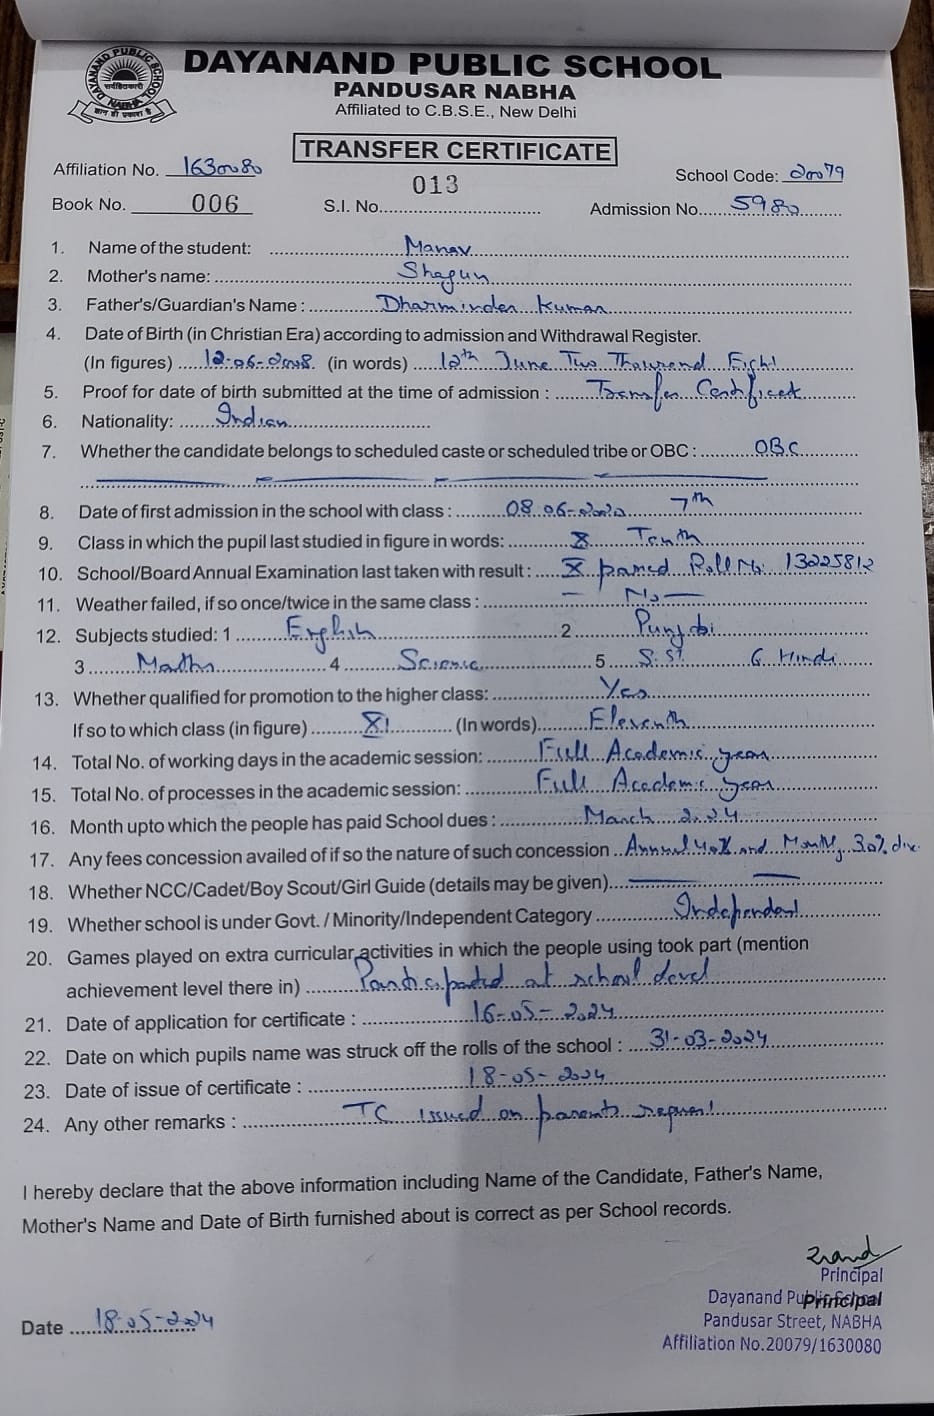 DAYANAND PUBLIC SCHOOL
PANDUSAR NABHA
Affiliated to C.B.S.E., New Delhi
DAYANAND PUBLIC SCHOOL
NABHA
TRANSFER CERTIFICATE
Affiliation No. 1630080
School Code: 20079
Book No. 006 S.I. No. 013 Admission No. 5980
1. Name of the student: Manav
2. Mother's name: Shagun
3. Father's/Guardian's Name : Dharminder Kumar
4. Date of Birth (in Christian Era) according to admission and Withdrawal Register.
(In figures) 12-06-2008 (in words) 12th June Two Thousand Eight
5. Proof for date of birth submitted at the time of admission : Transfer Certificate
6. Nationality: Indian
7. Whether the candidate belongs to scheduled caste or scheduled tribe or OBC : OBC
8. Date of first admission in the school with class : 08.06-2020 7th
9. Class in which the pupil last studied in figure in words: X Tenth
10. School/Board Annual Examination last taken with result : X passed Roll No: 13225812
11. Weather failed, if so once/twice in the same class : — No —
12. Subjects studied: 1 English 2 Punjabi
3 Maths 4 Science 5 S.St 6. Hindi
13. Whether qualified for promotion to the higher class: Yes
If so to which class (in figure) XI (In words) Eleventh
14. Total No. of working days in the academic session: Full Academic year
15. Total No. of processes in the academic session: Full Academic year
16. Month upto which the people has paid School dues : March 2024
17. Any fees concession availed of if so the nature of such concession Annual 40% and Monthly 30%
18. Whether NCC/Cadet/Boy Scout/Girl Guide (details may be given)
19. Whether school is under Govt. / Minority/Independent Category Independent
20. Games played on extra curricular activities in which the people using took part (mention
achievement level there in) Participated at school level
21. Date of application for certificate : 16-05-2024
22. Date on which pupils name was struck off the rolls of the school : 31-03-2024
23. Date of issue of certificate : 18-05-2024
24. Any other remarks : TC issued on parents request
I hereby declare that the above information including Name of the Candidate, Father's Name,
Mother's Name and Date of Birth furnished about is correct as per School records.
Principal
Dayanand Public School
Principal
Pandusar Street, NABHA
Affiliation No.20079/1630080
Date 18-05-2024